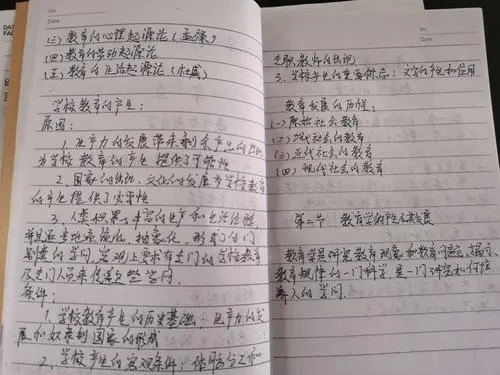 No.
Date
(三) 教育的心理起源论 (孟禄)
(四) 教育的劳动起源论
(五) 教育的生活起源论 (杜威)
学校教育的产生:
原因:
1. 生产力的发展带来剩余产品的出现
为学校教育的产生提供了可能性
2. 国家的出现、文化的发展为学校教育
的产生提供了必要性
3. 人类积累了丰富的生产和生活经验,
并且逐步地系统化、抽象化、形成了分门
别类的学问, 客观上要求有专门的学校教育
及专门人员来传递这些学问.
条件:
1. 学校教育产生的历史基础: 生产力的发
展和奴隶制国家的形成
2. 学校产生的客观条件: 体脑分工和
No.
Date
专职教师的出现
3. 学校产生的重要标志: 文字的产生和应用
教育发展的历程:
(一) 原始社会教育
(二) 古代社会的教育
(三) 近代社会的教育
(四) 现代社会的教育
第二节 教育学的产生与发展
教育学是研究教育现象和教育问题, 揭示
教育规律的一门科学, 是一门研究如何培
养人的学问.